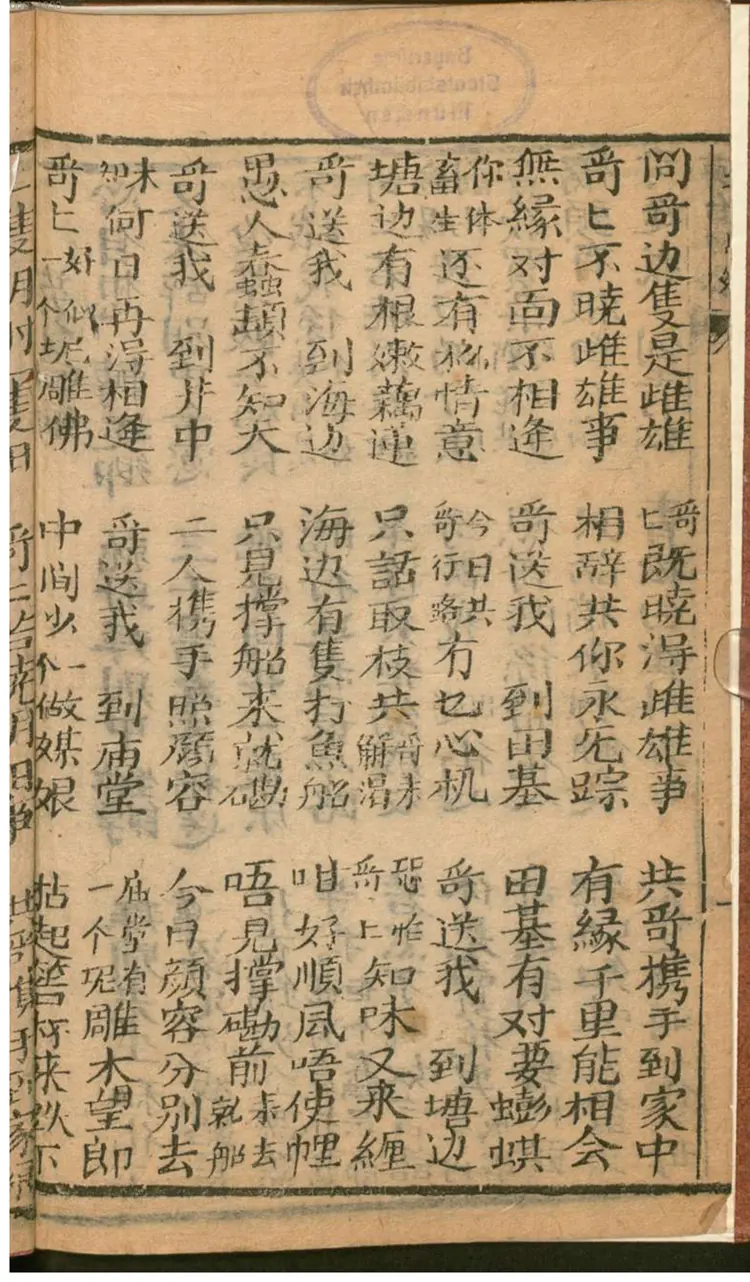 問哥边隻是雌雄 哥匕既晓得雌雄事 共哥携手到家中
哥匕不晓雌雄事 相辞共你永无踪 有緣千里能相会
無緣对面不相逢 哥送我 到田基 田基有对要蟛蜞
你体畜生还有 情意 今日共哥行路冇乜心机 哥送我 到塘边
塘边有根嫩藕蓮 只話取枝共哥 解渴 恐怕哥匕知味又来纏
哥送我 到海边 海边有隻打魚船 咁好順風唔使𢃇
愚人蠢 不知大 只見撑船来就磡 唔見撑磡前来去就船
哥送我 到井中 二人携手照顔容 今日顔容分别去
未知何日再得相逢 哥送我 到庙堂 庙堂有一个坭雕木望郎
哥匕好似一个坭雕佛 中间少一个做媒娘 拈起 杯来跌下